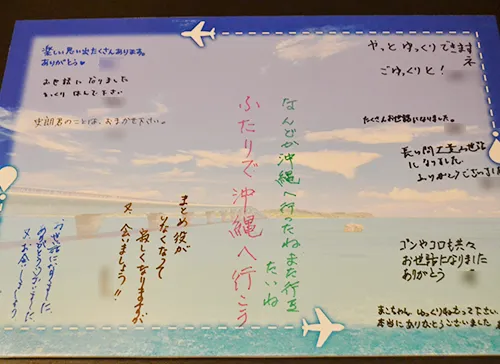 楽しい思い出たくさんあります。
ありがとう
お世話になりました
ゆっくり休んで下さい
史朗君のことは、おまかせ下さい。
やっとゆっくりできます
ネ
ごゆっくりと！
たくさんお世話になりました。
長い間大変お世話
になりました
ありがとうございました
なんどか沖縄へ行ったねまた行き
たいね
ふたりで沖縄へ行こう
まとめ役が
いなくなって
寂しくなりますが、
又、会いましょう!!
お世話になりました
ありがとうございました
又お会いしましょう
ゴンやコロも共々
お世話になりました
ありがとう
あこちゃん ゆっくりねむって下さい。
本当にありがとうございました